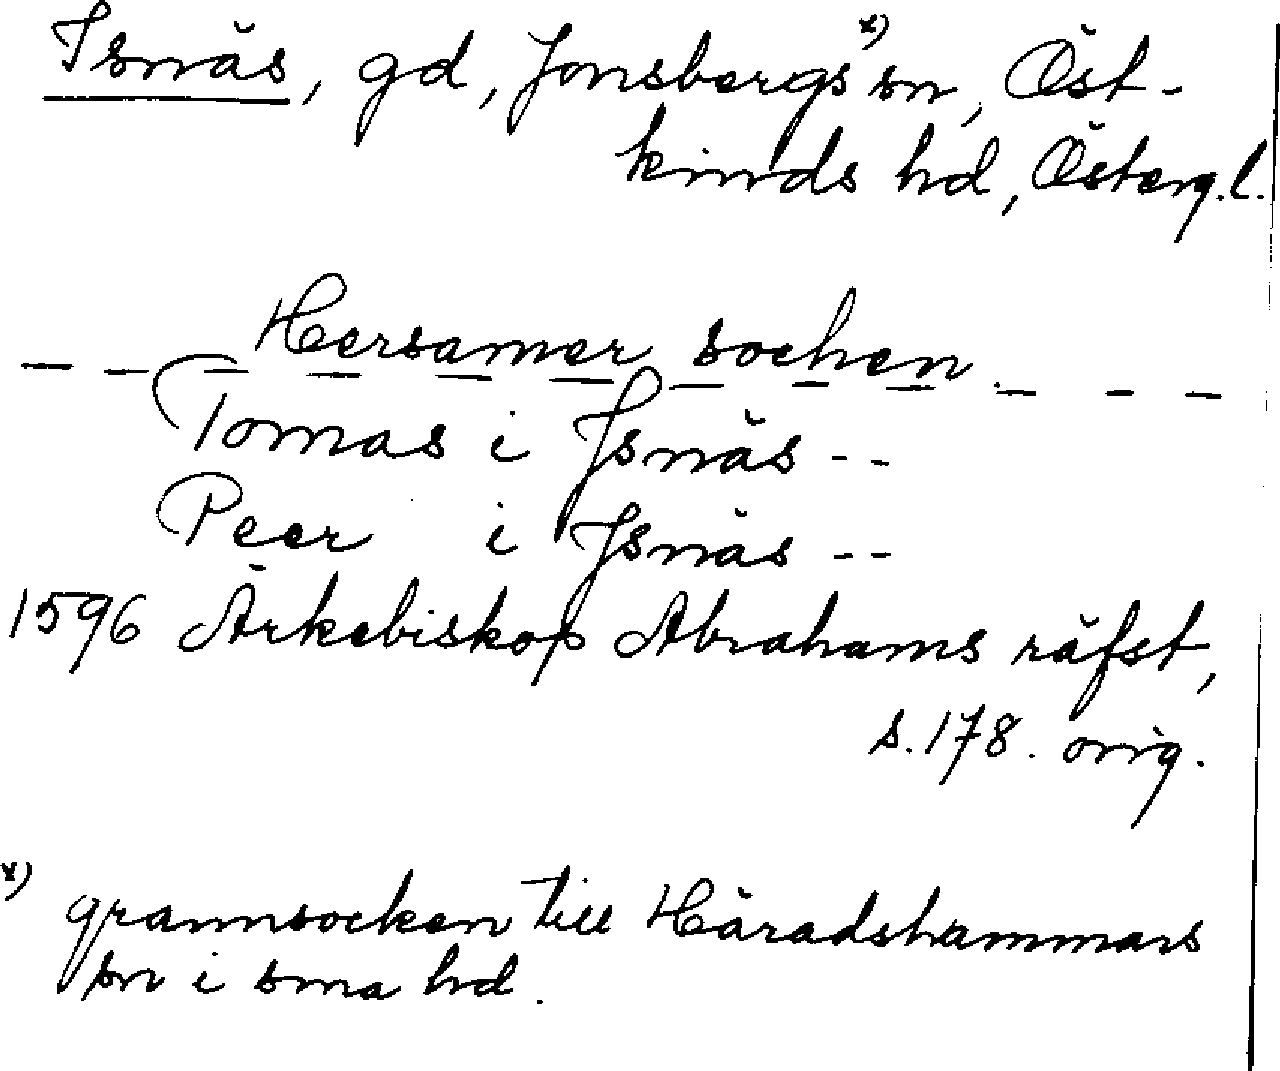 Isnäs, gd, Jonsbergs x) sn, Öst-
kinds hd, Österg.l.
Hersamer sochen
Tomas i Jsnäs --
Peer i Jsnäs --
1596 Ärkebiskop Abrahams räfst,
s. 178. orig.
x) grannsocken till Häradshammars
sn i sma hd.